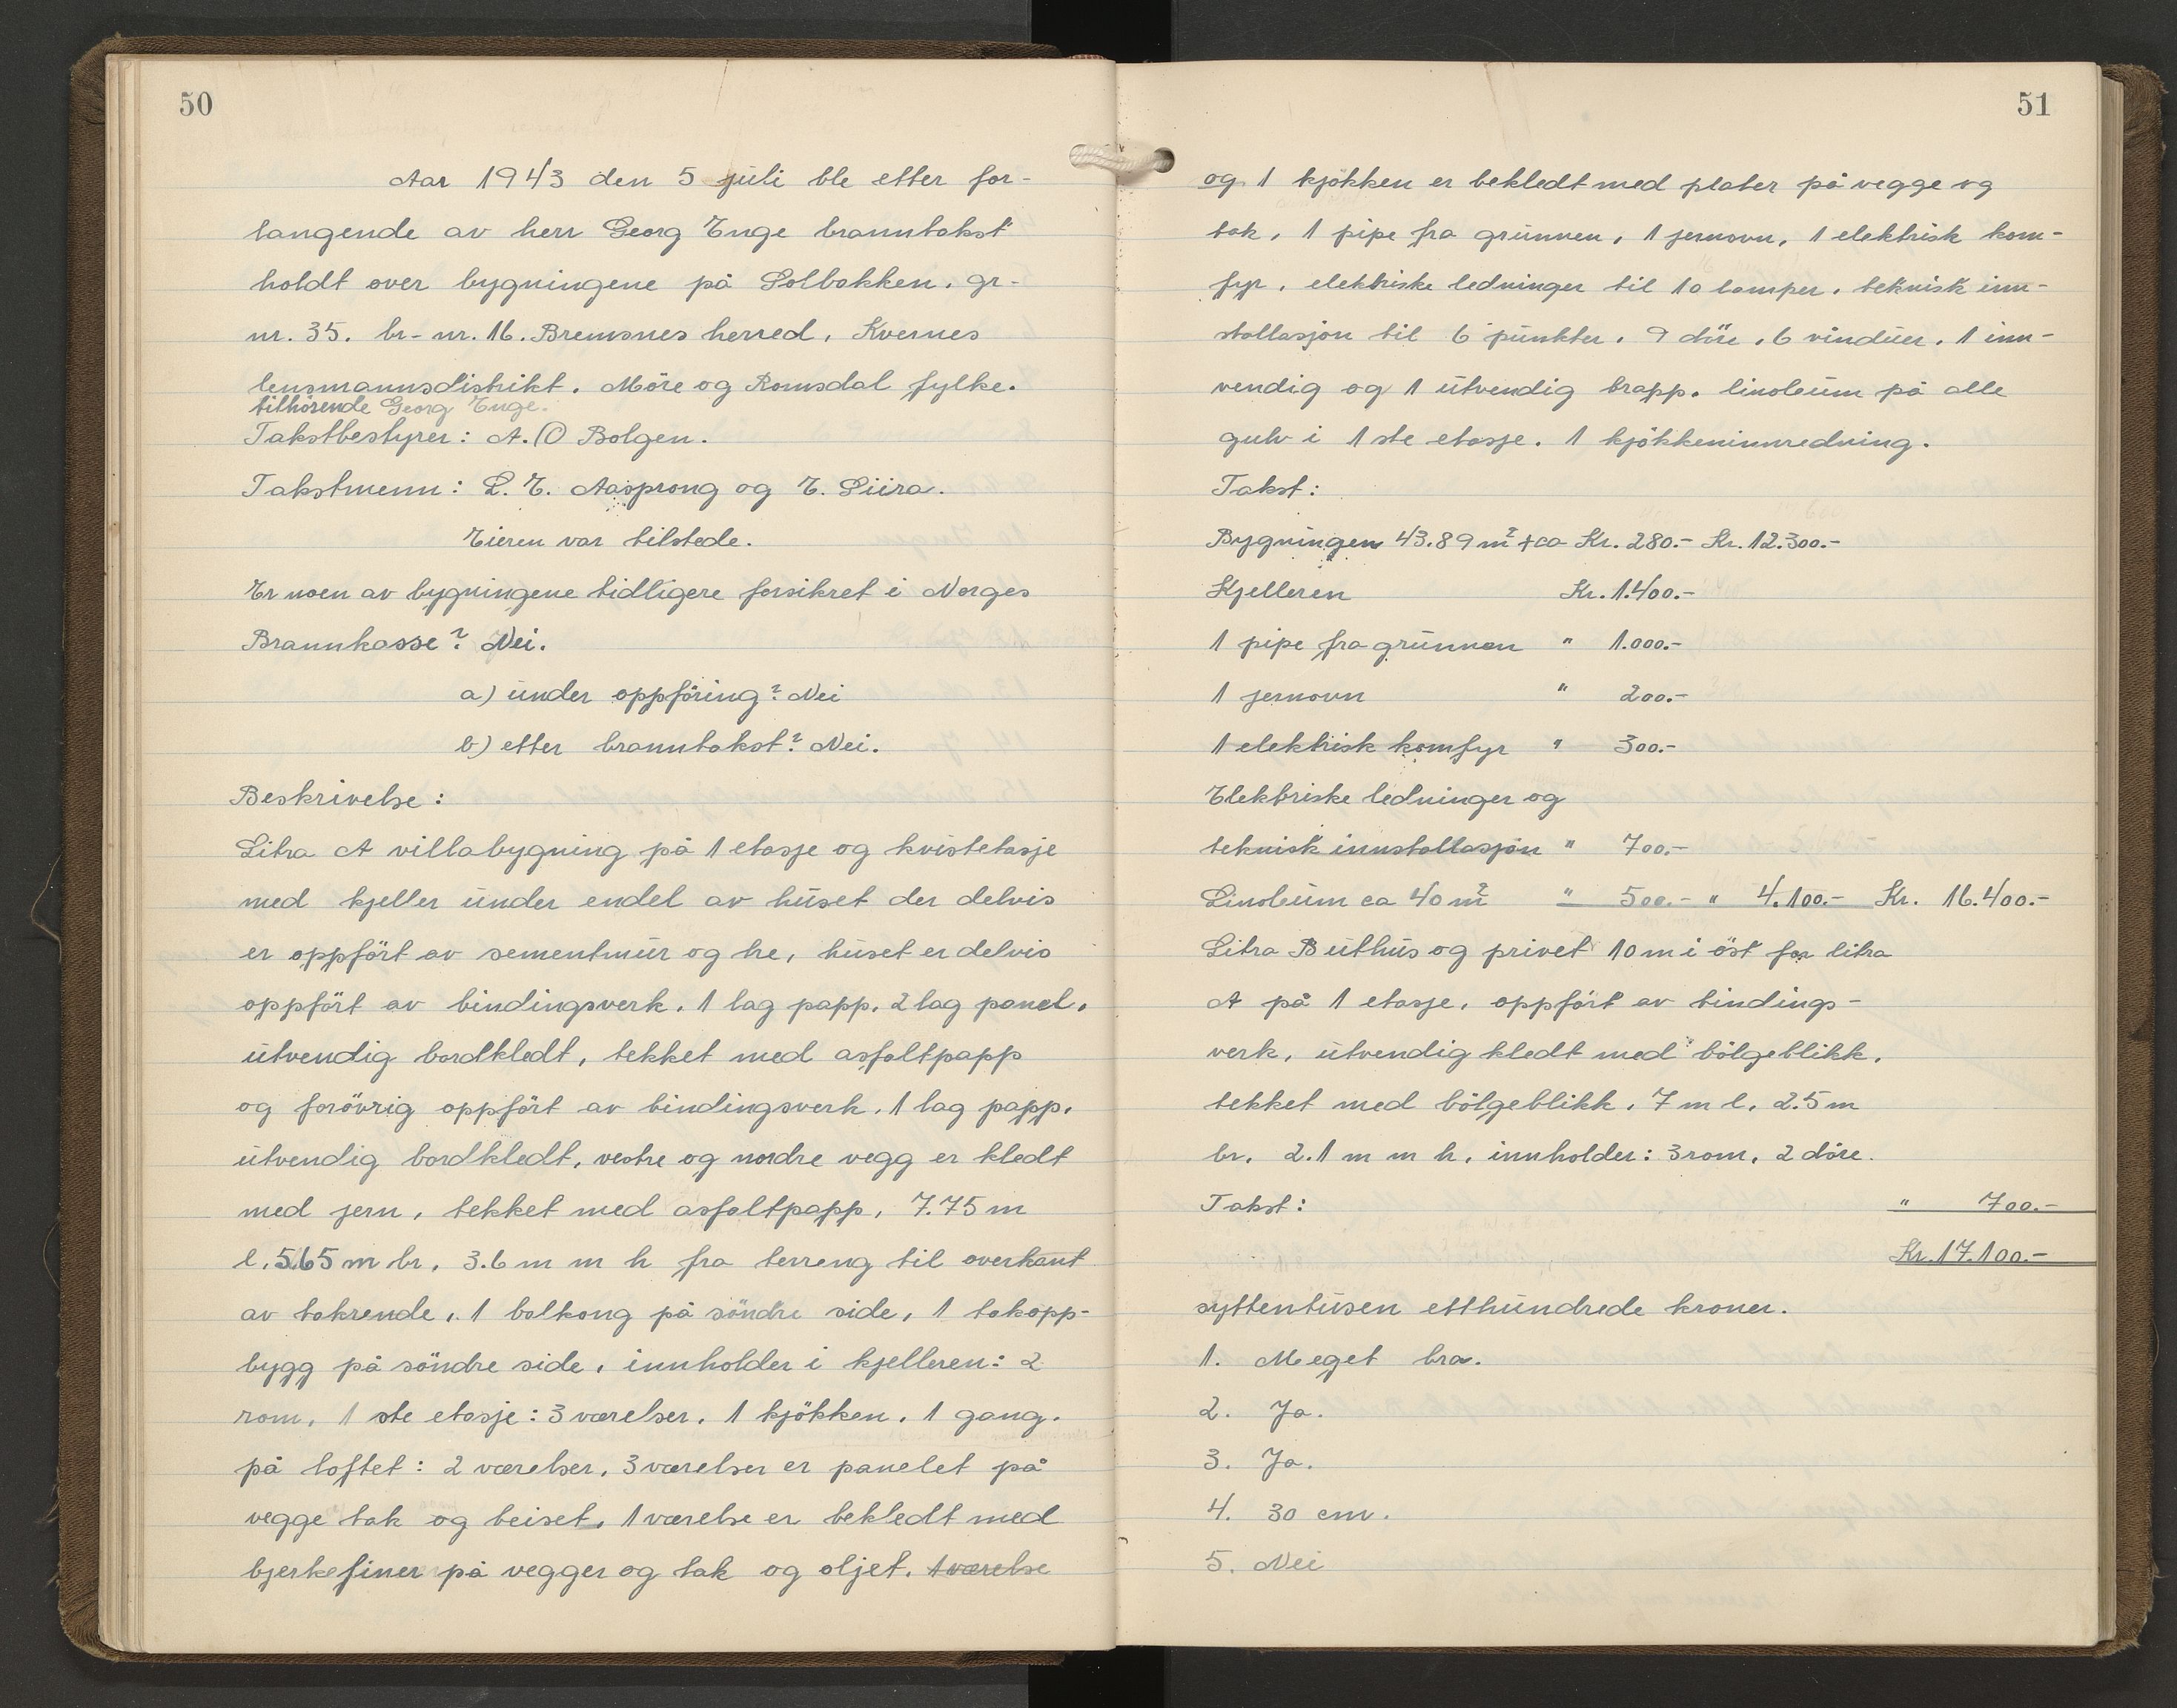 50
Aar 1943 den 5 juli ble etter for-
langende av herr Georg Enge branntakst
holdt over bygningene på Solbakken. gr-
nr. 35. br-nr. 16. Bremsnes herred, Kvernes
lensmannsdistrikt. Möre og Romsdal fylke.
tilhörende Georg Enge.
Takstbestyrer: A. O Bolgen.
Takstmenn: L. E. Aasprong og E. Siira.
Eieren var tilstede.
Er noen av bygningene tidligere forsikret i Norges
Brannkasse? Nei.
a) under oppföring? Nei
b) etter branntakst? Nei.
Beskrivelse:
Litra A villabygning på 1 etasje og kvistetasje
med kjeller under endel av huset der delvis
er oppfört av sementmur og tre, huset er delvis
oppfört av bindingsverk. 1 lag papp. 2 lag panel.
utvendig bordkledt, tekket med asfaltpapp
og forövrig oppfört av bindingsverk. 1 lag papp.
utvendig bordkledt, vestre og nordre vegg er kledt
med jern, tekket med asfaltpapp, 7.75 m
l. 5.65 m br. 3.6 m m h fra terreng til overkant
av takrende, 1 balkong på söndre side, 1 takopp-
bygg på söndre side, innholder i kjelleren: 2
rom, 1 ste etasje: 3 værelser, 1 kjökken, 1 gang.
på loftet: 2 værelser, 3 værelser er panelet på
vegge tak og beiset, 1 værelse er bekledt med
bjerkefiner på vegger og tak og oljet. 1 værelse
51
og 1 kjökken er bekledt med plater på vegge og
tak, 1 pipe fra grunnen, 1 jernovn, 1 elektrisk kom-
fyr, elektriske ledninger til 10 lamper, teknisk inn-
stallasjon til 6 punkter, 9 döre, 6 vinduer, 1 inn-
vendig og 1 utvendig trapp. linoleum på alle
gulv i 1 ste etasje. 1 kjökkeninnredning.
Takst:
Bygningen 43.89 m² + ca Kr. 280.- Kr. 12.300.-
Kjelleren Kr. 1.400.-
1 pipe fra grunnen " 1.000.-
1 jernovn " 200.-
1 elektrisk komfyr " 300.-
Elektriske ledninger og
teknisk innstallasjon " 700.-
Linoleum ca 40 m² " 500.- " 4.100.- Kr. 16.400.-
Litra B uthus og privet 10 m i öst for litra
A på 1 etasje, oppfört av bindings-
verk, utvendig kledt med bölgeblikk,
tekket med bölgeblikk, 7 m l. 2.5 m
br. 2.1 m m h, innholder: 3 rom, 2 döre.
Takst: " 700.-
Kr. 17.100.-
syttentusen etthundrede kroner.
1. Meget bra.
2. Ja.
3. Ja.
4. 30 cm.
5. Nei